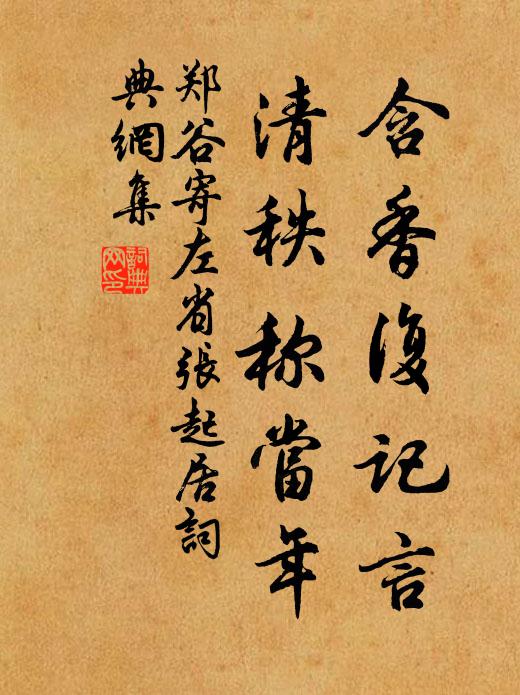 含香復记言
清秩称當年
郑谷寄左省張起居詞
典網集
詞典
网印